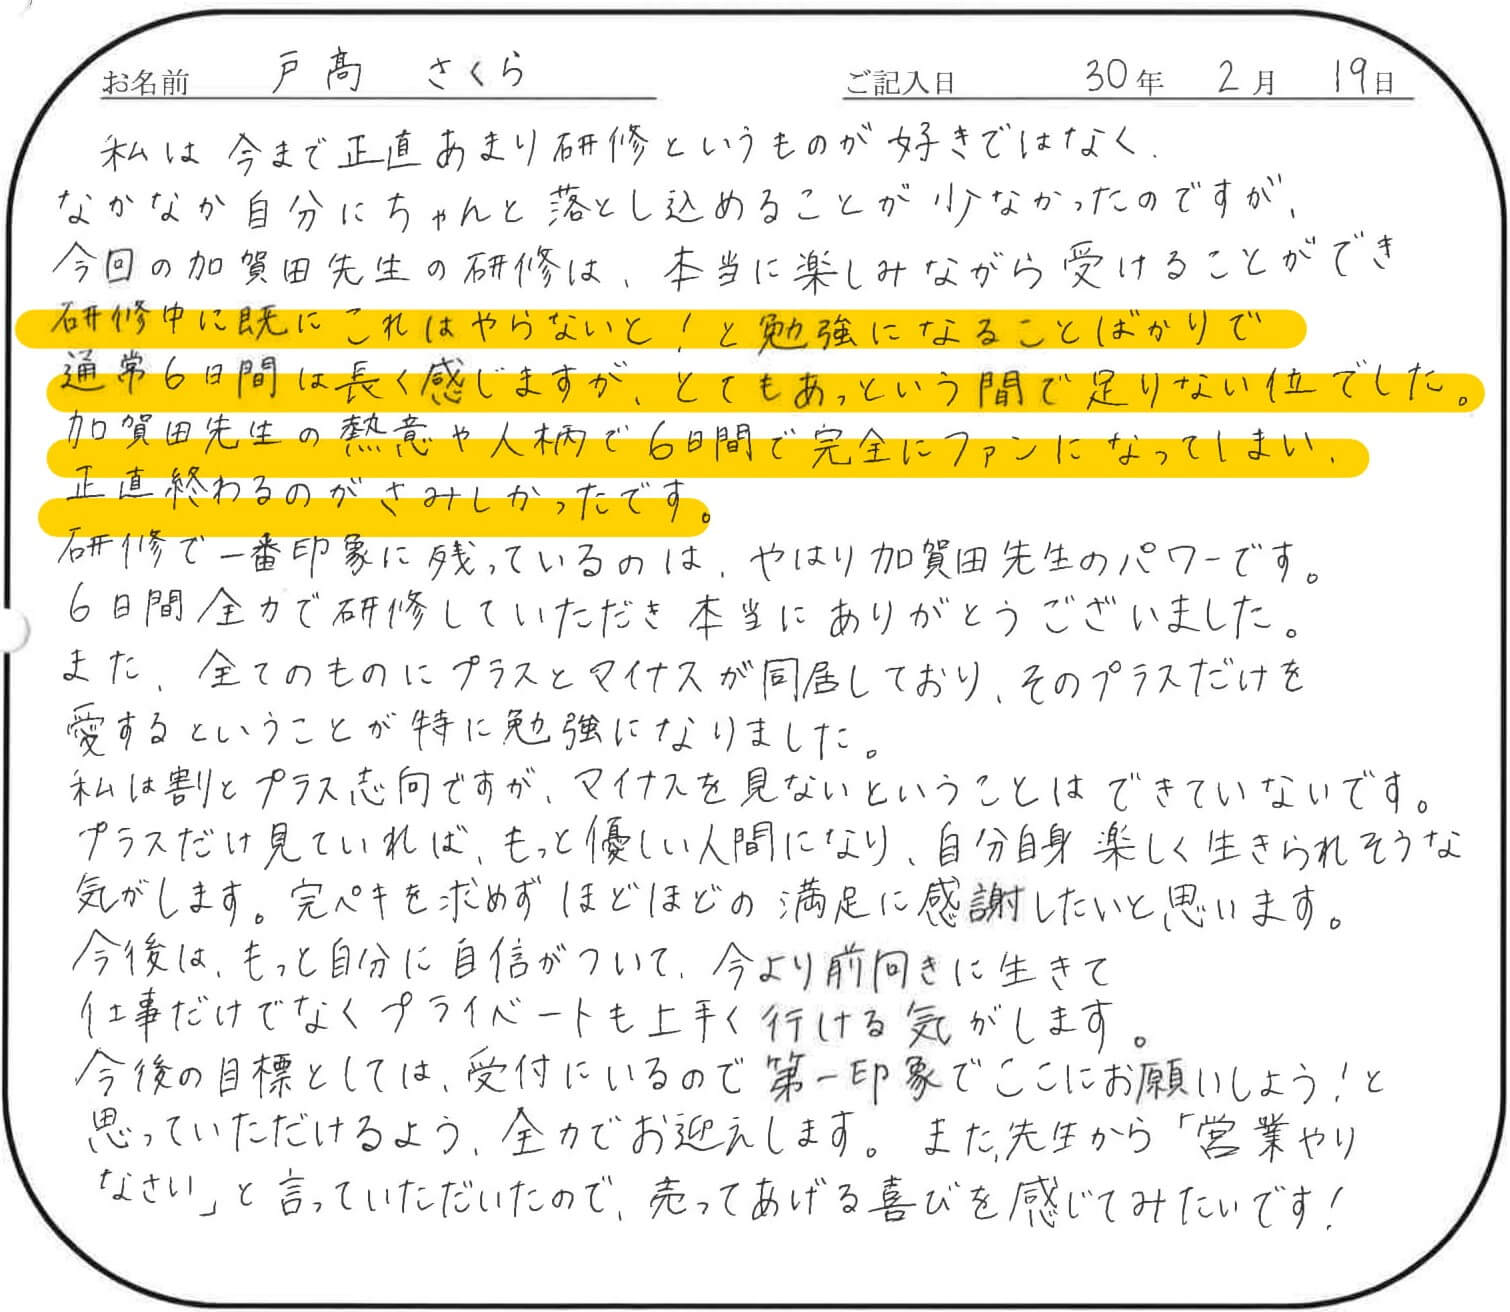 お名前 戸髙 さくら ご記入日 30年 2月 19日
私は今まで正直あまり研修というものが好きではなく、
なかなか自分にちゃんと落とし込めることが少なかったのですが、
今回の加賀田先生の研修は、本当に楽しみながら受けることができ
研修中に既にこれはやらないと!と勉強になることばかりで
通常6日間は長く感じますが、とてもあっという間で足りない位でした。
加賀田先生の熱意や人柄で6日間で完全にファンになってしまい、
正直終わるのがさみしかったです。
研修で一番印象に残っているのは、やはり加賀田先生のパワーです。
6日間全力で研修していただき本当にありがとうございました。
また、全てのものにプラスとマイナスが同居しており、そのプラスだけを
愛するということが特に勉強になりました。
私は割とプラス志向ですが、マイナスを見ないということはできていないです。
プラスだけ見ていれば、もっと優しい人間になり、自分自身楽しく生きられそうな
気がします。完ペキを求めずほどほどの満足に感謝したいと思います。
今後は、もっと自分に自信がついて、今より前向きに生きて
仕事だけでなくプライベートも上手く行ける気がします。
今後の目標としては、受付にいるので第一印象でここにお願いしよう!と
思っていただけるよう、全力でお迎えします。また、先生から「営業やり
なさい」と言っていただいたので、売ってあげる喜びを感じてみたいです!